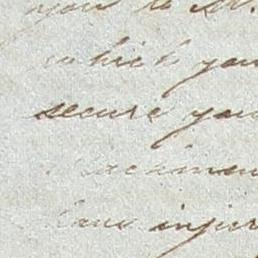 your to Mr.
which you
secure you
have injur